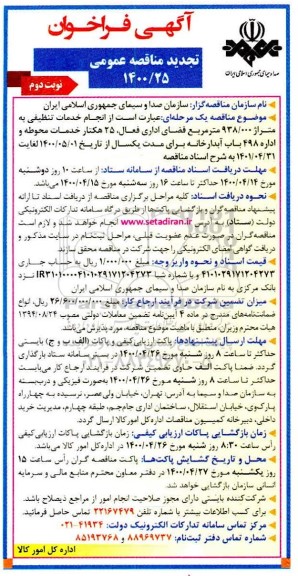 آگهی فراخوان
تجدید مناقصه عمومی
۱۴۰۰/۲۵
صدا و سیمای جمهوری اسلامی ایران
نوبت دوم
نام سازمان مناقصه‌گزار: سازمان صدا و سیمای جمهوری اسلامی ایران
موضوع مناقصه یک مرحله‌ای: عبارت است از انجام خدمات تنظیفی به
متراژ ۹۳۸/۰۰۰ مترمربع فضای اداری فعال، ۲۵ هکتار خدمات محوطه و
اداره ۴۹۸ باب آبدارخانه برای مدت یکسال از تاریخ ۱۴۰۰/۰۵/۰۱ لغایت
۱۴۰۱/۰۴/۳۱ به شرح اسناد مناقصه
مهلت دریافت اسناد مناقصه از سامانه ستاد: از ساعت ۱۰ روز دوشنبه
مورخ ۱۴۰۰/۰۴/۱۴ حداکثر تا ساعت ۱۶ روز سه‌شنبه مورخ ۱۴۰۰/۰۴/۱۵ می‌باشد.
نحوه دریافت اسناد: کلیه مراحل برگزاری مناقصه از دریافت اسناد تا ارائه
پیشنهاد مناقصه‌گران و بازگشایی پاکت‌ها از طریق درگاه سامانه تدارکات الکترونیکی
دولت (ستاد) به آدرس www.setadiran.ir انجام خواهد شد و لازم است
مناقصه‌گران در صورت عدم عضویت قبلی، مراحل ثبت‌نام در سایت مذکور و
دریافت گواهی امضای الکترونیکی را جهت شرکت در مناقصه محقق سازند.
قیمت اسناد و نحوه واریز وجه: مبلغ ۱/۰۰۰/۰۰۰ ریال به حساب جاری
بانک مرکزی به نام سازمان صدا و سیمای جمهوری اسلامی ایران
میزان تضمین شرکت در فرآیند ارجاع کار: مبلغ ۲۶/۶۰۰/۰۰۰/۰۰۰ ریال، انواع
ضمانت‌نامه‌های مندرج در ماده ۴ آیین‌نامه تضمین معاملات دولتی مصوب ۱۳۹۴/۰۸/۲۴
هیات محترم وزیران، منطبق با ماهیت موضوع مناقصه، مورد پذیرش می‌باشد.
مهلت ارسال پیشنهادها: پاکت ارزیابی کیفی و پاکات (الف، ب و ج) بایستی
حداکثر تا ساعت ۸ روز شنبه مورخ ۱۴۰۰/۰۴/۲۶ در بستر سامانه ستاد بارگذاری
گردد. ضمنا پاکت الف حاوی تضمین شرکت در فرآیند ارجاع کار می‌بایست
حداکثر تا ساعت ۸ روز شنبه مورخ ۱۴۰۰/۰۴/۲۶ به‌صورت فیزیکی و دربسته
به سازمان صدا و سیما به آدرس تهران، خیابان ولی‌عصر، نرسیده به چهارراه
پارک‌وی، خیابان استقلال، ساختمان اداری جام‌جم، طبقه چهارم، مدیریت خرید
داخلی، دبیرخانه کمیسیون مناقصات اداره کل امور کالا ارسال گردد.
زمان بازگشایی پاکات ارزیابی کیفی: زمان بازگشایی پاکات ارزیابی کیفی
رأس ساعت ۸:۳۰ روز شنبه مورخ ۱۴۰۰/۰۴/۲۶ در اداره کل امور کالا می‌باشد.
محل و تاریخ گشایش پاکت‌ها: پاکت مناقصه گران رأس ساعت ۱۵
روز یکشنبه مورخ ۱۴۰۰/۰۴/۲۷ در دفتر معاون محترم منابع مالی و سرمایه
انسانی سازمان بازگشایی خواهد شد.
شرکت‌کننده بایستی دارای مجوز صلاحیت انجام امور از مراجع ذیصلاح باشد.
برای کسب اطلاعات بیشتر با شماره تلفن ۲۲۱۶۷۴۷۹ تماس حاصل فرمائید.
مرکز تماس سامانه تدارکات الکترونیک دولت: ۴۱۹۳۴-۰۲۱
شماره تماس دفتر ثبت‌نام: ۸۸۹۶۹۷۳۷ و ۸۵۱۹۳۷۶۸
اداره کل امور کالا